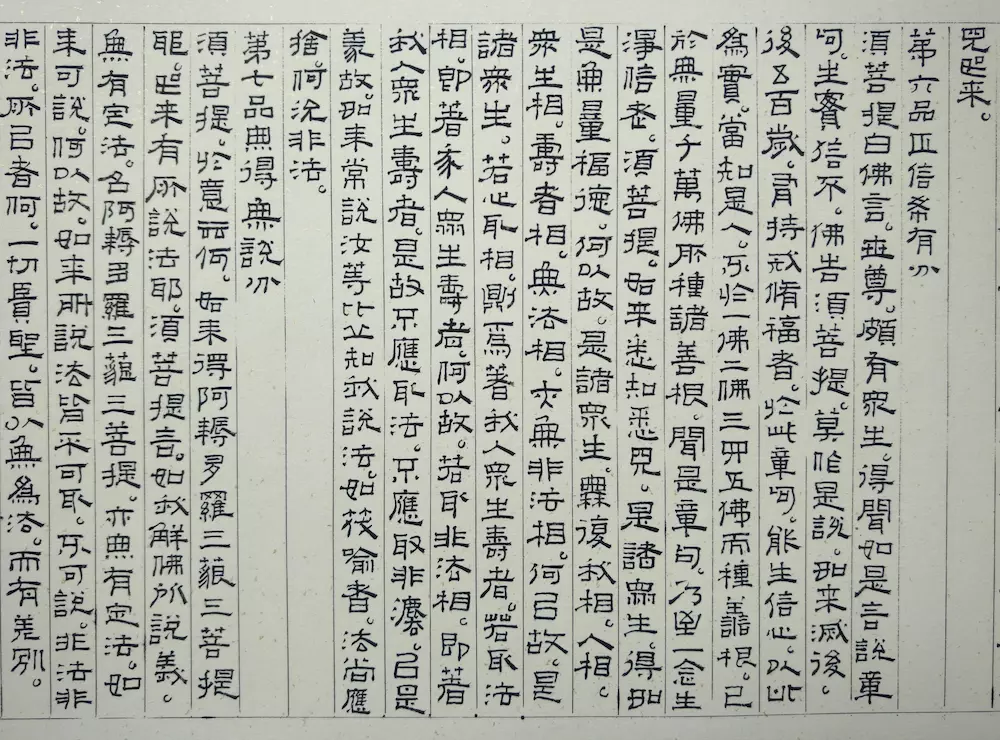 见如来。
第六品正信希有分
须菩提白佛言。世尊。颇有众生。得闻如是言說章
句。生實信不。佛告须菩提。莫作是說。如来滅後。
後五百歲。有持戒脩福者。於此章句。能生信心。以此
為實。當知是人。不於一佛二佛三四五佛而種善根。已
於無量千萬佛所種諸善根。聞是章句。乃至一念生
淨信者。須菩提。如来悉知悉見。是諸眾生。得如
是無量福德。何以故。是諸眾生。無復我相。人相。
眾生相。壽者相。無法相。亦無非法相。何以故。是
諸眾生。若心取相。則為著我人眾生壽者。若取法
相。即著我人眾生壽者。何以故。若取非法相。即著
我人眾生壽者。是故不應取法。不應取非灋。以是
義故如来常說汝等比丘知我說法。如筏喻者。法尚應
捨。何況非法。
第七品無得無說分
須菩提。於意云何。如来得阿耨多羅三藐三菩提
耶。如来有所說法耶。須菩提言。如我解佛所說義。
無有定法。名阿耨多羅三藐三菩提。亦無有定法。如
来可說。何以故。如来所說法皆不可取。不可說。非法非
非法。所以者何。一切賢聖。皆以無為法。而有差別。